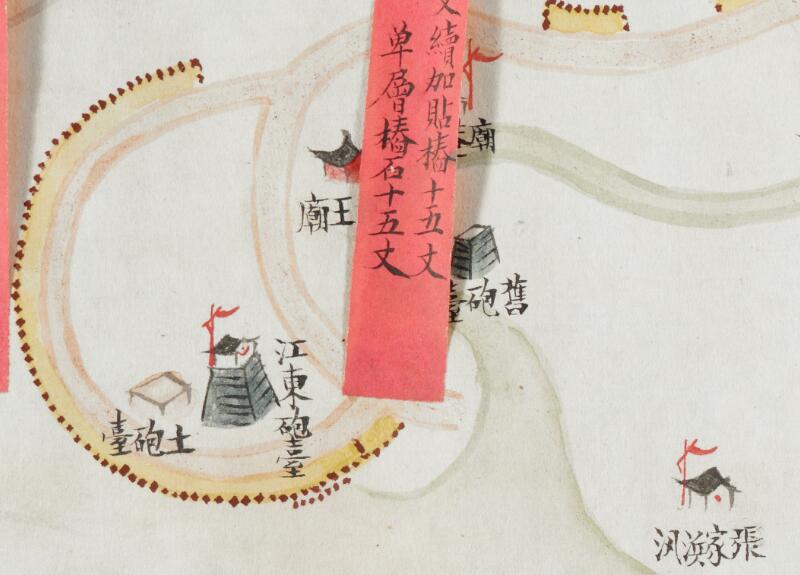 續加貼樁十五丈
单層樁石十五丈
廟
王廟
舊砲臺
江東砲臺
土砲臺
張家浜汛